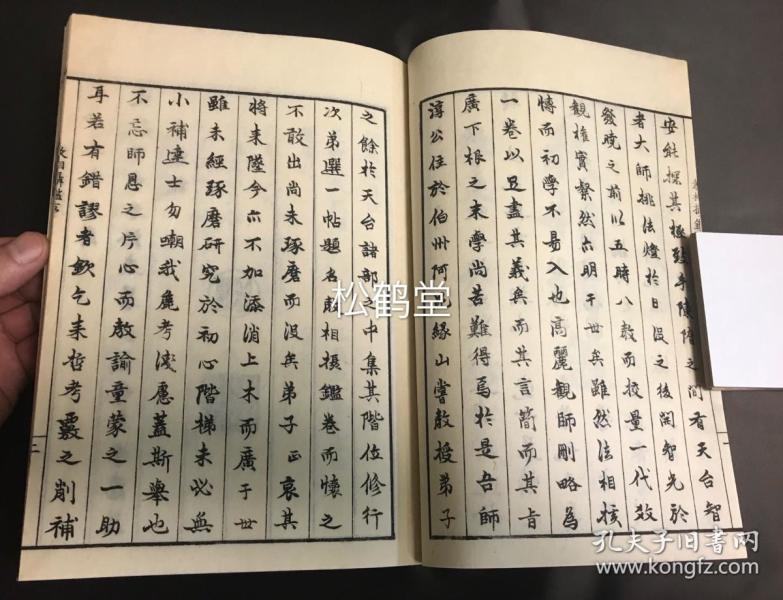 安能探其極致乎陳隋之間有天台智
者大師挑法燈於日沒之後開智光於
發曉之前以五時八教而投量一代教
觀權實粲然亦明于世矣雖然法相核
博而初學不易入也高麗觀師刪略為
一卷以且盡其義矣而其言簡而其旨
廣下根之末學尚苦難得焉於是吾師
淳公住於伯州阿弥縁山嘗教授弟子
之餘於天台諸部之中集其階位修行
次第選一帖題名教相摂鑑卷而懷之
不敢出尚未琢磨而沒矣弟子正哀其
將未墜今亦不加添消上木而廣于世
雖未經琢磨研究於初心階梯未必無
小補達士勿嘲我麁考淺慮蓋斯舉也
不忘師恩之片心而教諭童蒙之一助
耳若有錯謬者欽乞来哲考覈之削補
二
一
松鹤堂
孔夫子旧书网
www.kongfz.com